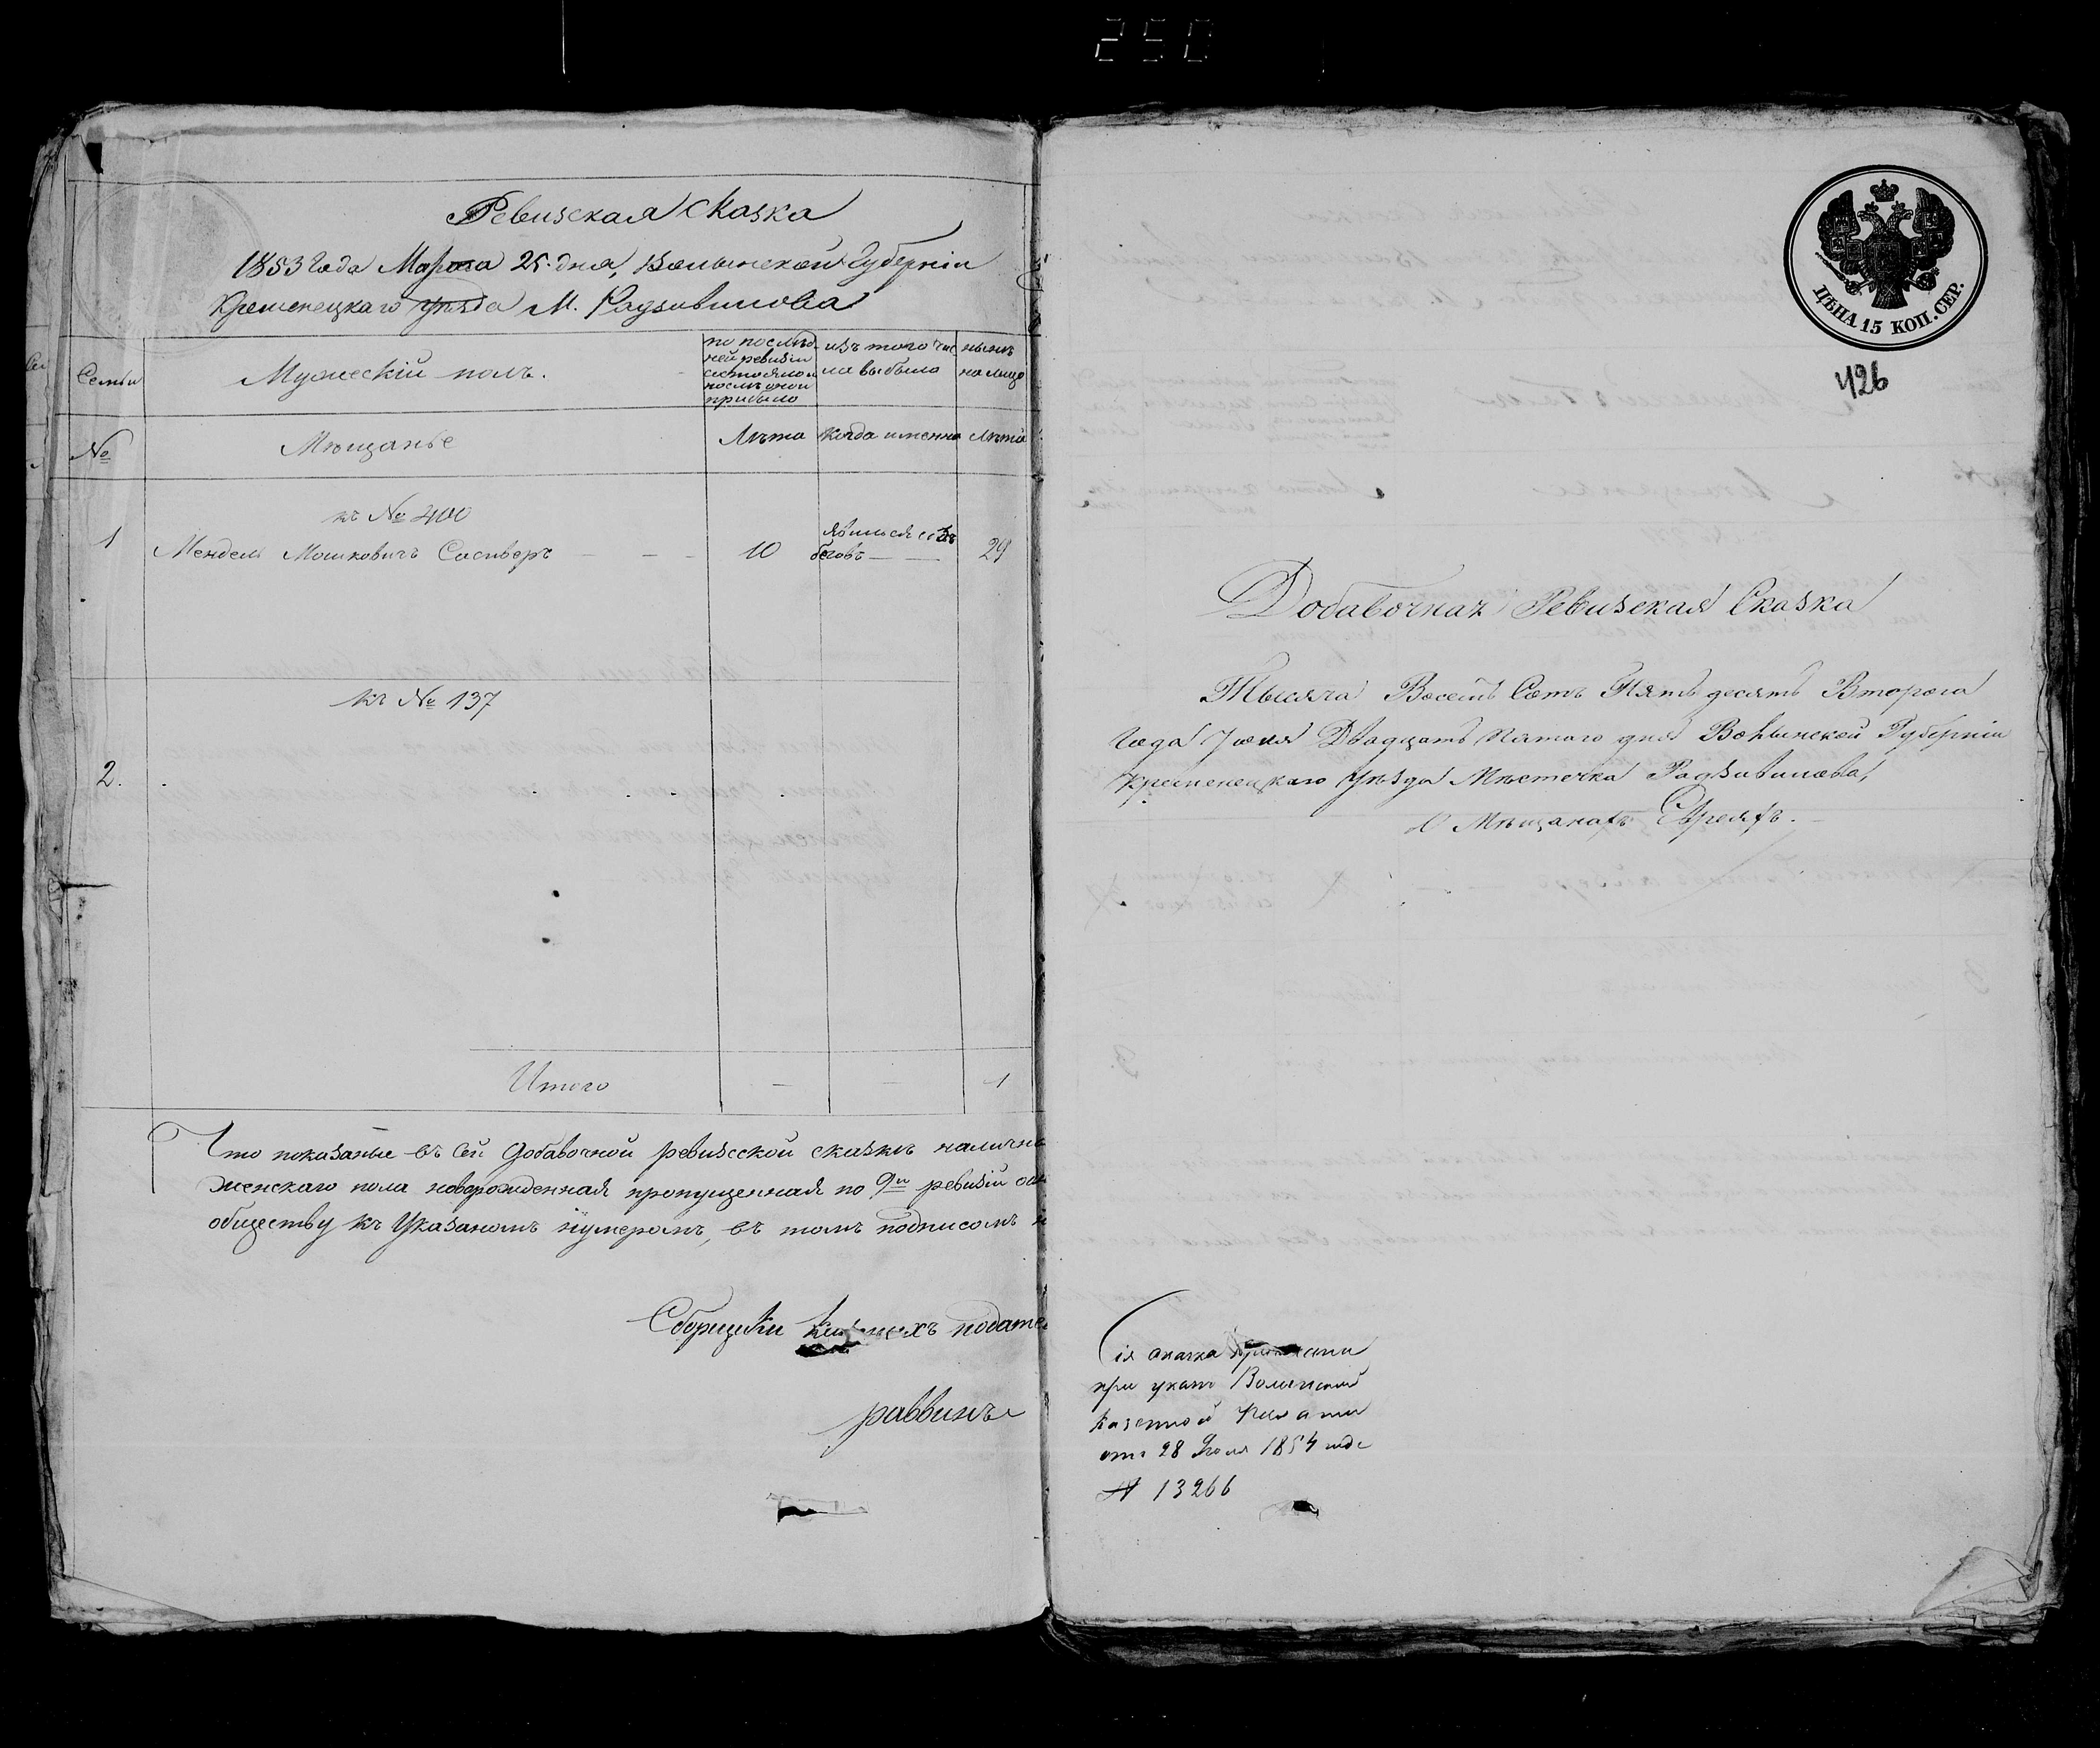 250
Ревизская Сказка
1853 Года Марта 25. дня, Волынской Губерніи
Кременецкаго уѣзда М. Радзивилова
Семьи
Мужескій полъ.
по послѣд-
ней ревизіи
состояло и
послѣ оной
прибыло
изъ того чис
ла выбыло
нынѣ
на лицо
№
Мѣщанье
Лѣта
Когда именно
Лѣта
къ № 400
1
Мендель Мошковичъ Сасиверъ
10
явился изъ
бегов
29
къ № 137
2.
Итого
1
Что показаные въ сей добавочной ревизсской сказкѣ наличны
женскаго пола новорожденная пропущенная по 9й ревизіи
обществу къ указаномъ нумеромъ, въ томъ подписомъ
Сборщики податей
раввинъ
ЦѢНА 15 КОП. СЕР.
426
Добавочная Ревизская Сказка
Тысяча Восемь Сотъ Пятьдесятъ Втораго
Года Іюля Двадцать Пятаго дня Волынской Губерніи
Кременецкаго Уѣзда Мѣстечка Радзивилова,
О Мѣщанахъ Евреяхъ.
Сія сказка
при указѣ Волынской
Казенной Палаты
отъ 28 Іюля 1854 года
№ 13266